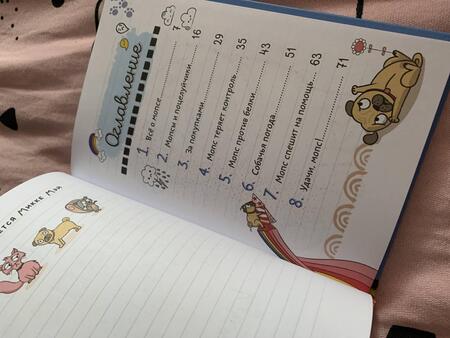 Оглавление
1. Всё о мопсе 7
2. Мопсы и поцелуйчики 16
3. За покупками 29
4. Мопс теряет контроль 35
5. Мопс против белки 43
6. Собачья погода 51
7. Мопс спешит на помощь 63
8. Удачи, мопс! 71
Микке Мэй